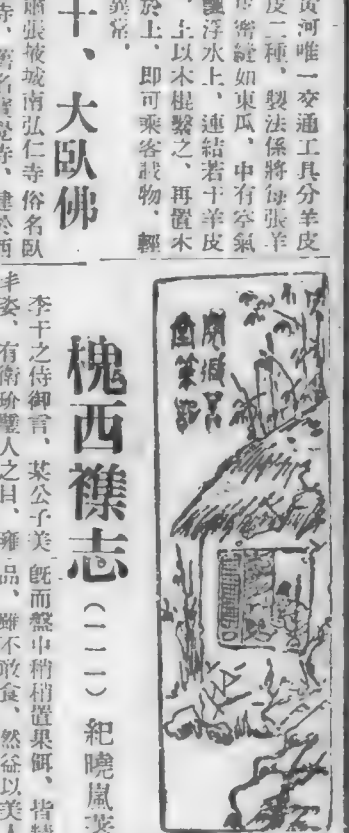 黃河唯一交通工具分羊皮
皮二種、製法係將每張羊
密縫如東瓜、中有空氣
飄浮水上、連結若干羊皮
、上以木棍繫之、再置木
於上、即可乘客載物、輕
異常。
十、大臥佛
肅張掖城南弘仁寺俗名臥
寺、舊名寶覺寺、建於西
閱微草
堂筆記
槐西襍志(一一一) 紀曉嵐
李千之侍御言、某公子美
丰姿、有衛玠璧人之目、雍
既而盤中稍稍置果餌、皆精
品、雖不敢食、然益以美人